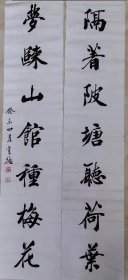 隔着陂塘聽荷葉
夢騑山館種梅花
癸未四月